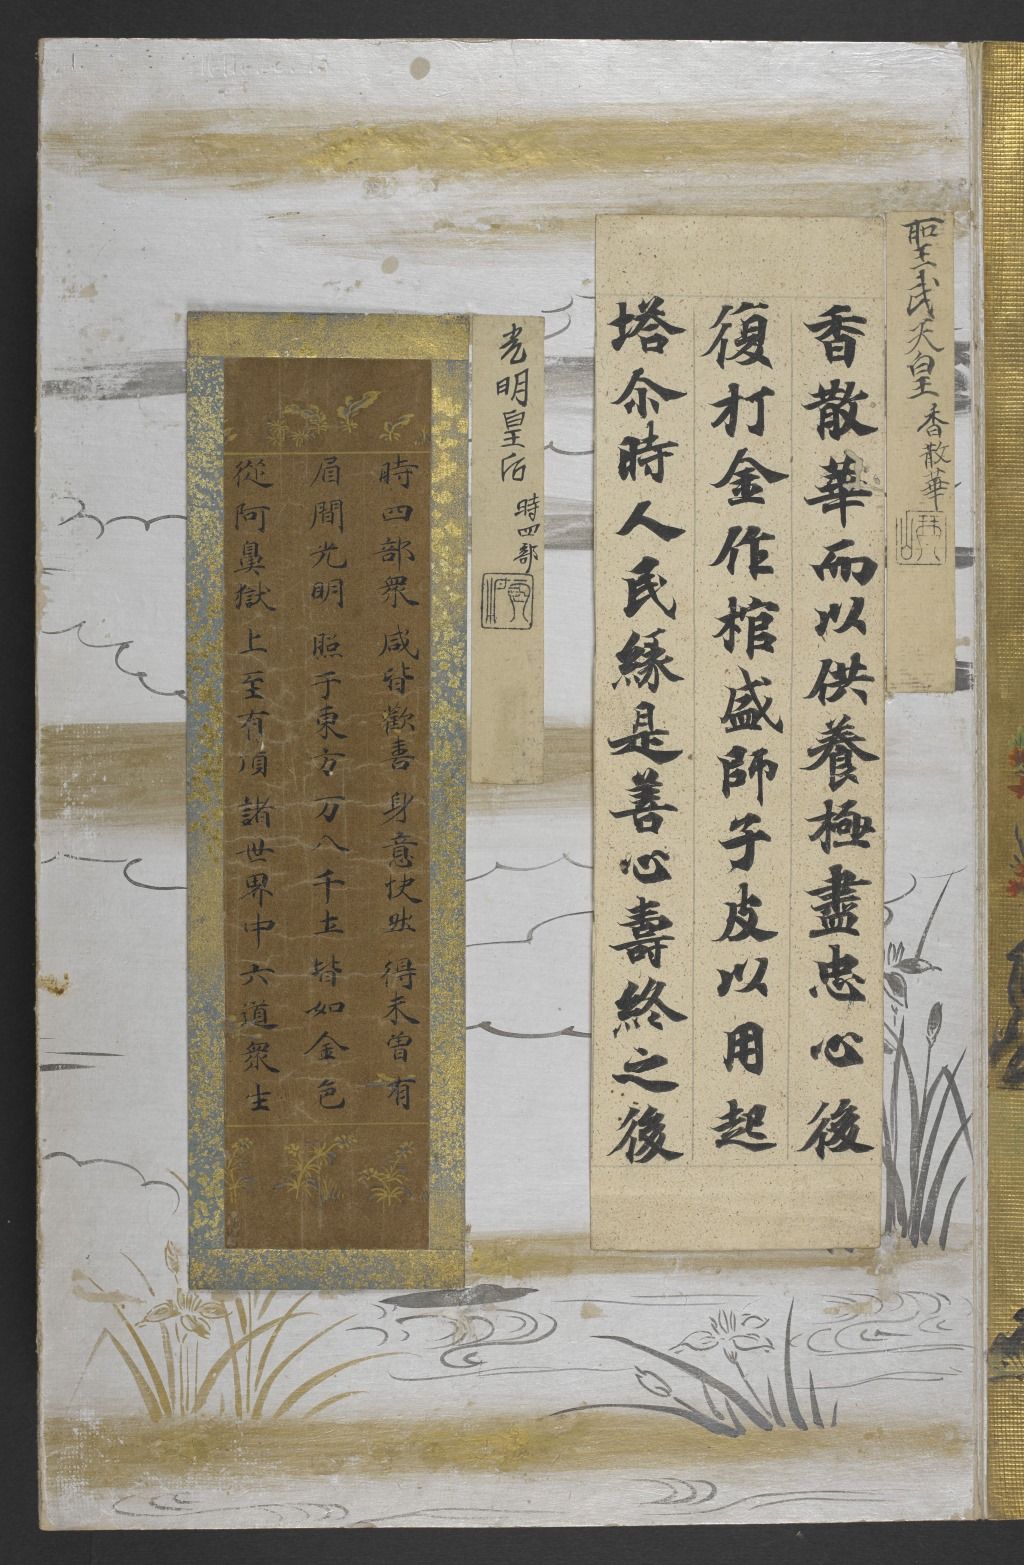 聖武天皇 香散華
香散華而以供養極盡忠心後
復打金作棺盛師子皮以用起
塔尒時人民緣是善心壽終之後
光明皇后 時四部
時四部衆咸皆歡喜身意快然得未曾有
眉間光明照于東方万八千土皆如金色
從阿鼻獄上至有頂諸世界中六道衆生